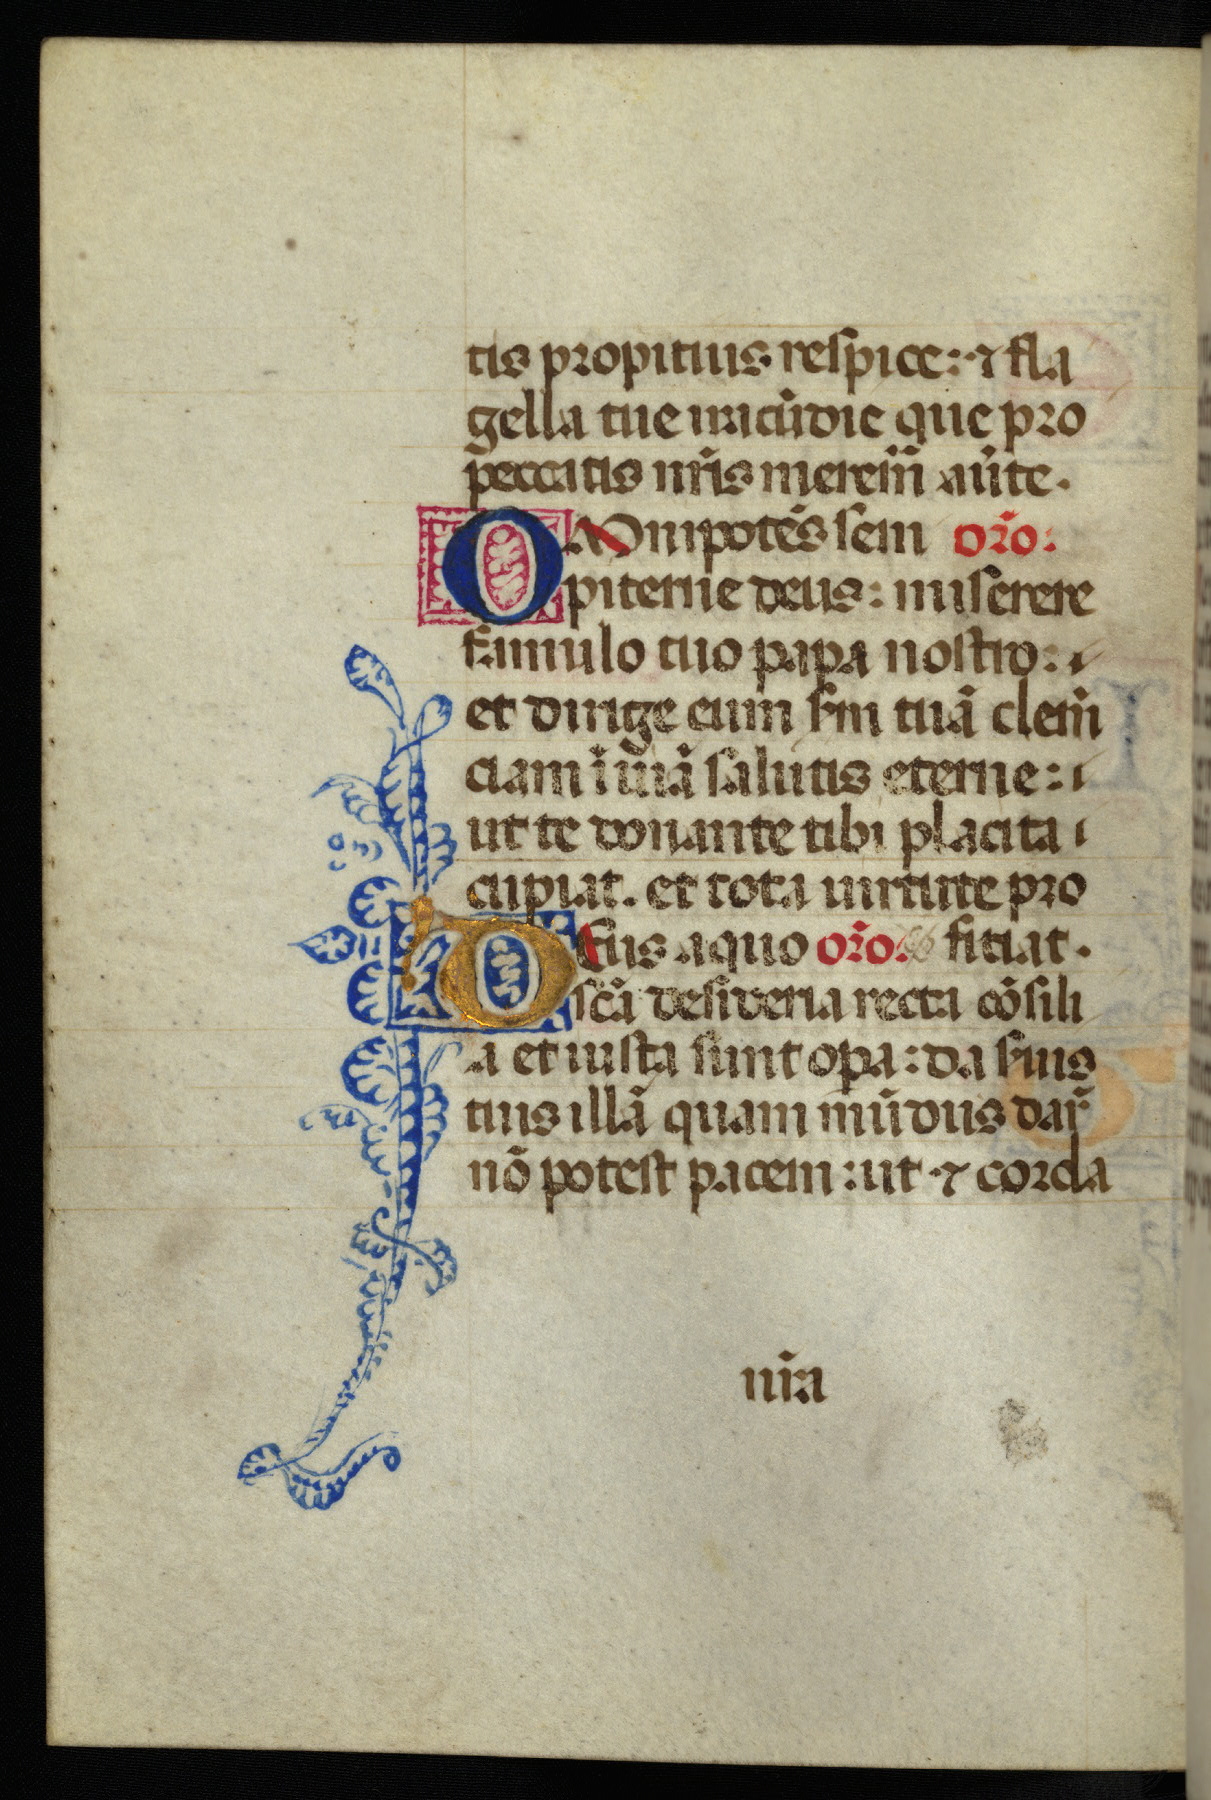 tis propitius respice: ⁊ fla
gella tue iracūdie que pro
peccatis nr̄is merem̄ auīte.
OMnipotēs sem or̄o:
piterne deus: miserere
famulo tuo papa nostro:
et dirige eum sm̄ tuā clem̄
ciam ī uiā salutis eterne:
ut te donante tibi placita
cupiat. et tota uirtute pro
DEus a quo or̄o. ficiat.
sc̄a desideria recta cōsili
a et iusta sunt opa: da suis
tuis illā quam mūdus dar̄
nō potest pacem: ut ⁊ corda
nr̄a